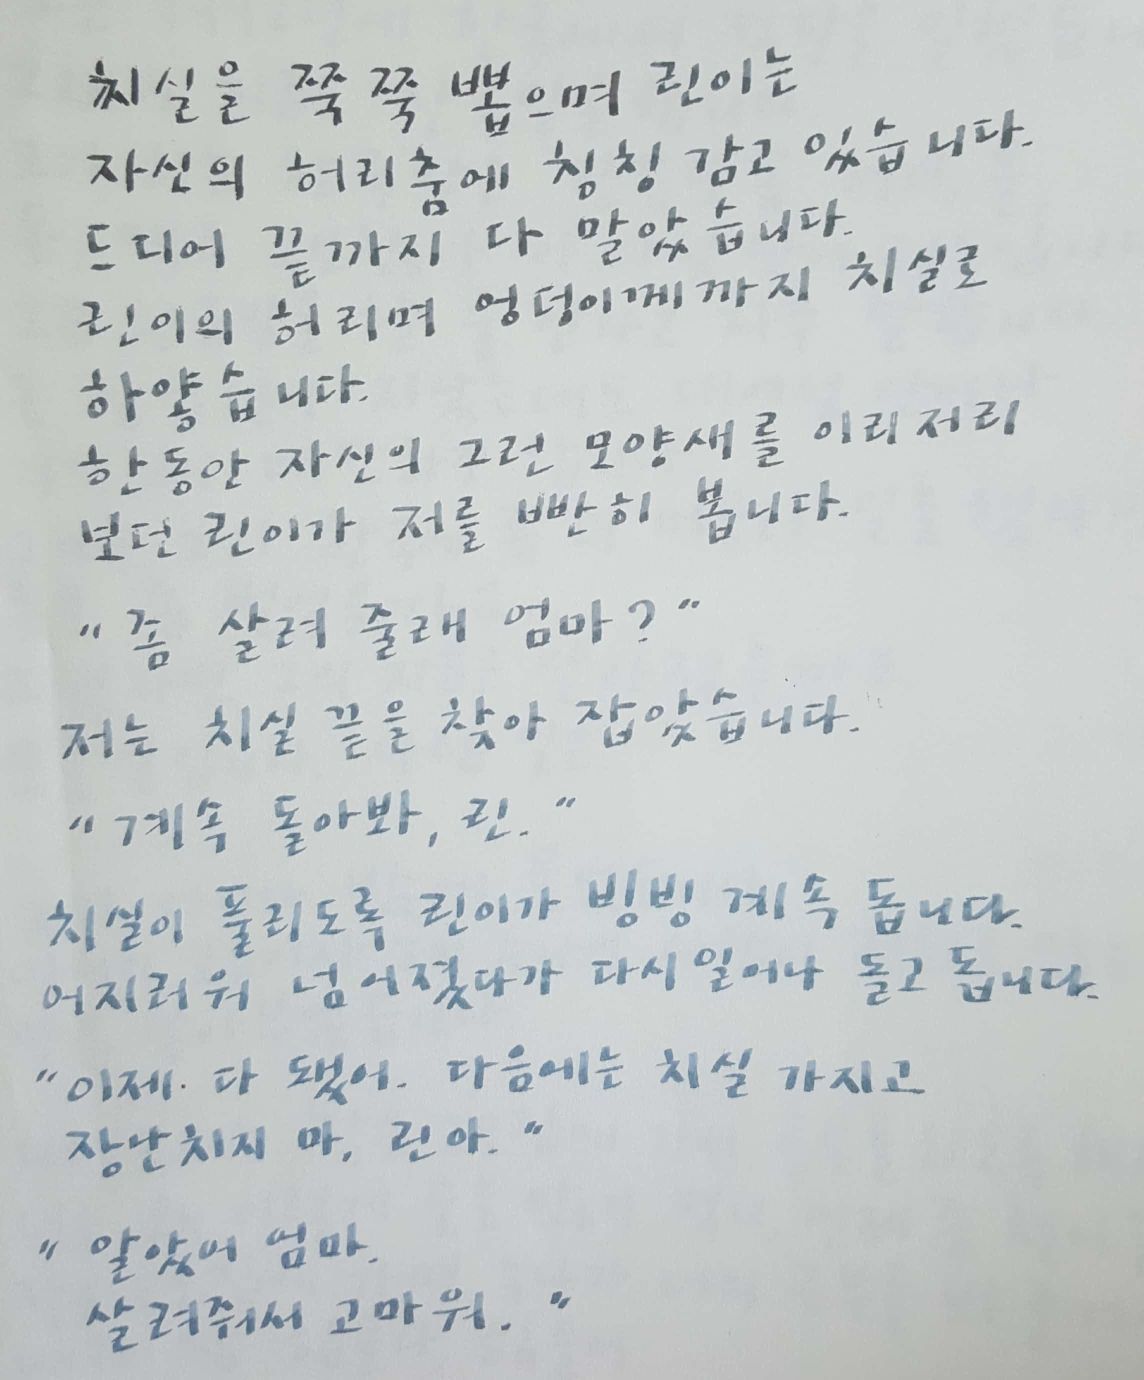 치실을 쭉쭉 뽑으며 린이는
자신의 허리춤에 칭칭 감고 있습니다.
드디어 끝까지 다 말았습니다.
린이의 허리며 엉덩이께까지 치실로
하얗습니다.
한동안 자신의 그런 모양새를 이리저리
보던 린이가 저를 빤히 봅니다.
"좀 살려 줄래 엄마?"
저는 치실 끝을 찾아 잡았습니다.
"계속 돌아봐, 린."
치실이 풀리도록 린이가 빙빙 계속 돕니다.
어지러워 넘어졌다가 다시 일어나 돌고 돕니다.
"이제. 다 됐어. 다음에는 치실 가지고
장난치지 마, 린아."
"알았어 엄마.
살려줘서 고마워."